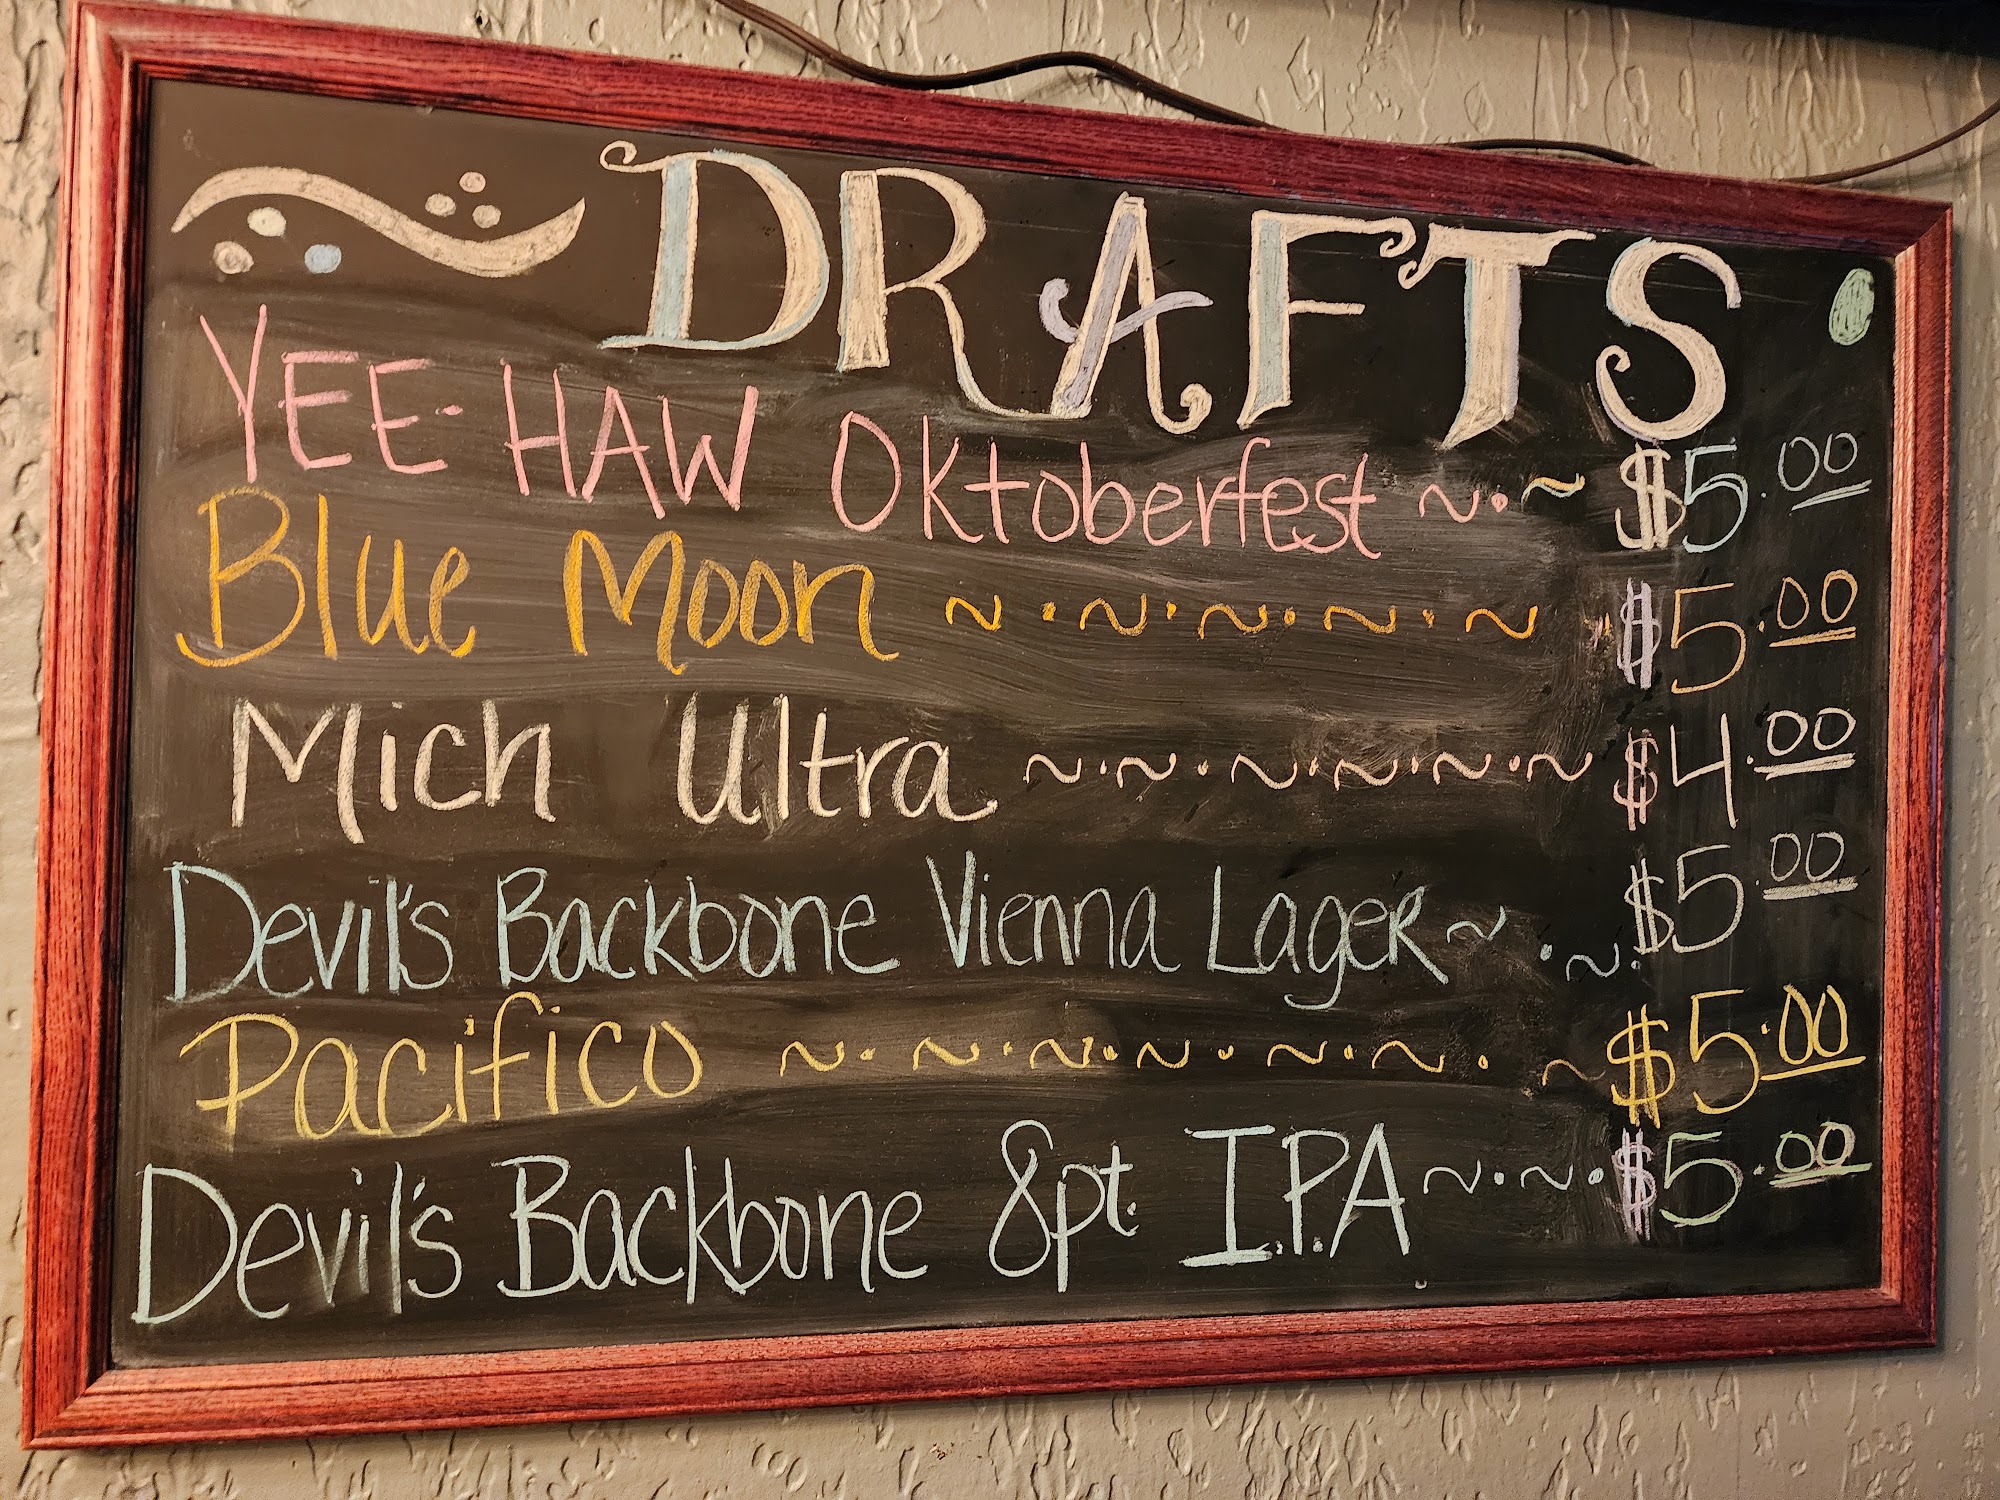 DRAFTS
YEE-HAW Oktoberfest ~.~ $5.00
Blue Moon ~.~.~.~.~ $5.00
Mich Ultra ~.~.~.~.~.~ $4.00
Devil's Backbone Vienna Lager ~.~. $5.00
Pacifico ~.~.~.~.~.~.~ $5.00
Devil's Backbone 8pt. I.P.A ~.~. $5.00